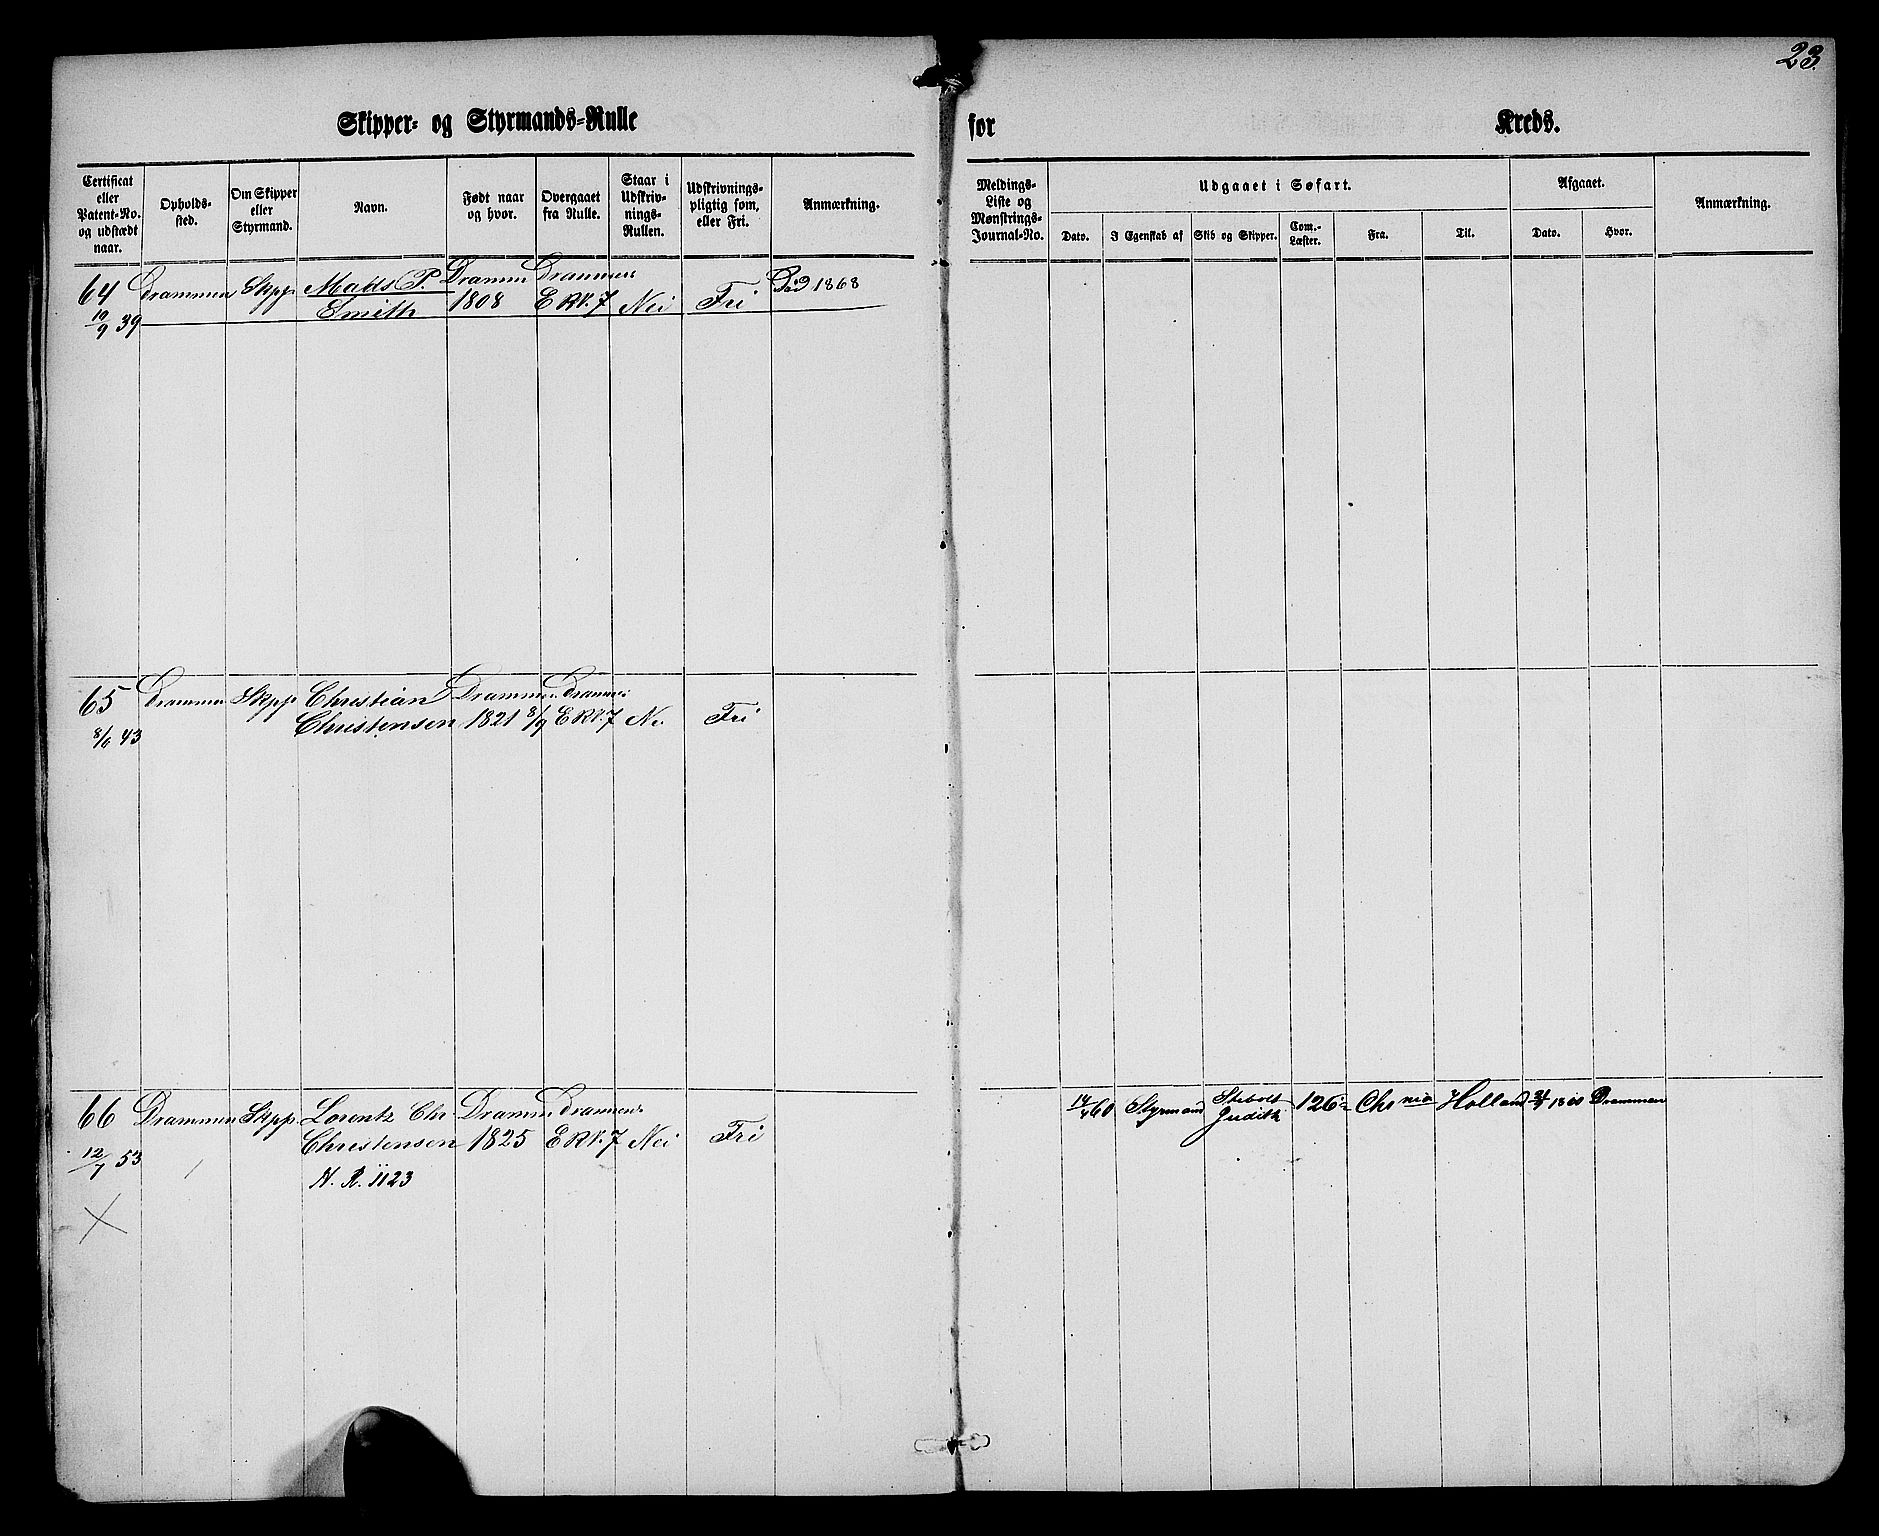 23.
Skipper- og Styrmands-Rulle for Kreds.
Certificat eller Patent-No. og udstædt naar.
Opholds-sted.
Om Skipper eller Styrmand.
Navn.
Født naar og hvor.
Overgaaet fra Rulle.
Staar i Udskriv-nings-Rullen.
Udskrivnings-pligtig som, eller Fri.
Anmærkning.
Meldings-Liste og Mønstrings-Journal-No.
Udgaaet i Søfart.
Dato.
I Egenskab af
Skib og Skipper.
Com.-Læster.
Fra.
Til.
Afgaaet.
Dato.
Hvor.
Anmærkning.
64 Drammen Skpp. Matts P. Dramm Drammens Død 1868
Smith 1808 E R N. 7 Nei Fri
19/9 39
65 Drammen Skpp Christian Drammen Drammens
Christensen 1821 8/9 E R N. 7 Nei Fri
8/6 43
66 Drammen Skpp. Lorentz Chr. Dramm Drammens 14/4 60 Styrmand 126 Chr nia Holland 1860 Drammen
Christensen 1825 E R N. 7 Nei Fri Judith
12/7 53
N. R. 1123